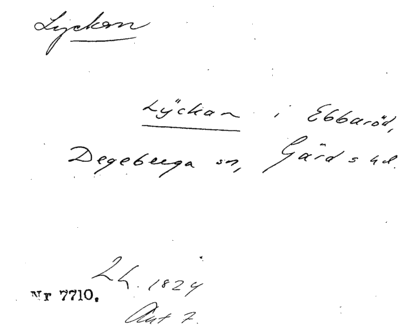 Lyckan
Lyckan i Ebbaröd,
Degeberga sn, Gärds hd.
Lh. 1824
Nr 7710.
Akt 7.